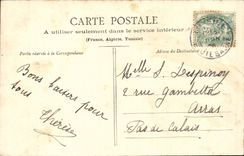 CARTE POSTALE
A utiliser seulement dans le service intérieur
(France, Algérie, Tunisie)
Partie réservée à la Correspondance
Adresse du Destinataire
Bons baisers pour
tous
Thérèse
Melle S. Lespinoy
2 rue Gambetta
Arras
Pas de Calais